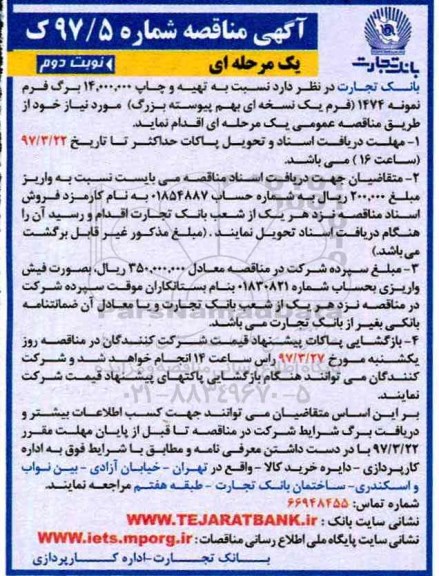 آگهی مناقصه شماره ۹۷/۵ ک
بانک تجارت
یک مرحله ای
نوبت دوم
بانک تجارت در نظر دارد نسبت به تهیه و چاپ ۱۴,۰۰۰,۰۰۰ برگ فرم
نمونه ۱۴۷۴ (فرم یک نسخه ای بهم پیوسته بزرگ) مورد نیاز خود از
طریق مناقصه عمومی یک مرحله ای اقدام نماید.
۱- مهلت دریافت اسناد و تحویل پاکات حداکثر تا تاریخ ۹۷/۳/۲۲
(ساعت ۱۶) می باشد.
۲- متقاضیان جهت دریافت اسناد مناقصه می بایست نسبت به واریز
مبلغ ۲۰۰,۰۰۰ ریال به شماره حساب ۰۱۸۵۴۸۸۷ به نام کارمزد فروش
اسناد مناقصه نزد هر یک از شعب بانک تجارت اقدام و رسید آن را
هنگام دریافت اسناد تحویل نمایند. (مبلغ مذکور غیر قابل برگشت
می باشد)
۳- مبلغ سپرده شرکت در مناقصه معادل ۳۵۰,۰۰۰,۰۰۰ ریال، بصورت فیش
واریزی بحساب شماره ۰۱۸۳۰۸۲۱ بنام بستانکاران موقت سپرده شرکت
در مناقصه نزد هر یک از شعب بانک تجارت و یا معادل آن ضمانتنامه
بانکی بغیر از بانک تجارت می باشد.
۴- بازگشایی پاکات پیشنهاد قیمت شرکت کنندگان در مناقصه روز
یکشنبه مورخ ۹۷/۳/۲۷ راس ساعت ۱۴ انجام خواهد شد و شرکت
کنندگان می توانند هنگام بازگشایی پاکتهای پیشنهاد قیمت شرکت
نمایند.
بر این اساس متقاضیان می توانند جهت کسب اطلاعات بیشتر و
دریافت برگ شرایط شرکت در مناقصه تا قبل از پایان مهلت مقرر
۹۷/۳/۲۲ با در دست داشتن معرفی نامه و مطابق با شرایط فوق به اداره
کارپردازی - دایره خرید کالا - واقع در تهران - خیابان آزادی - بین نواب
و اسکندری- ساختمان بانک تجارت - طبقه هفتم مراجعه نمایند.
شماره تماس: ۶۶۹۴۸۴۵۵
نشانی سایت بانک : WWW.TEJARATBANK.ir
نشانی سایت پایگاه ملی اطلاع رسانی مناقصات: www.iets.mporg.ir
بانک تجارت-اداره کارپردازی
ParsNamadData
۰۲۱-۸۸۳۴۹۶۷۰-۵